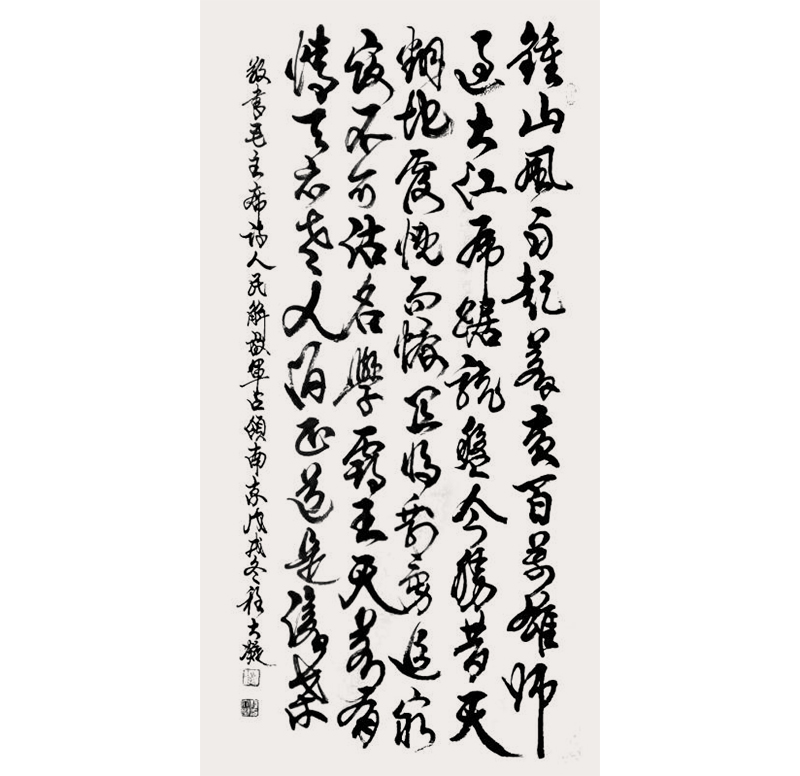 鍾山風雨起蒼黃百萬雄師
過大江虎踞龍盤今勝昔天
翻地覆慨而慷宜將剩勇追窮
寇不可沽名學霸王天若有
情天亦老人間正道是滄桑
敬書毛主席詩人民解放軍占領南京戊戌冬程大凝